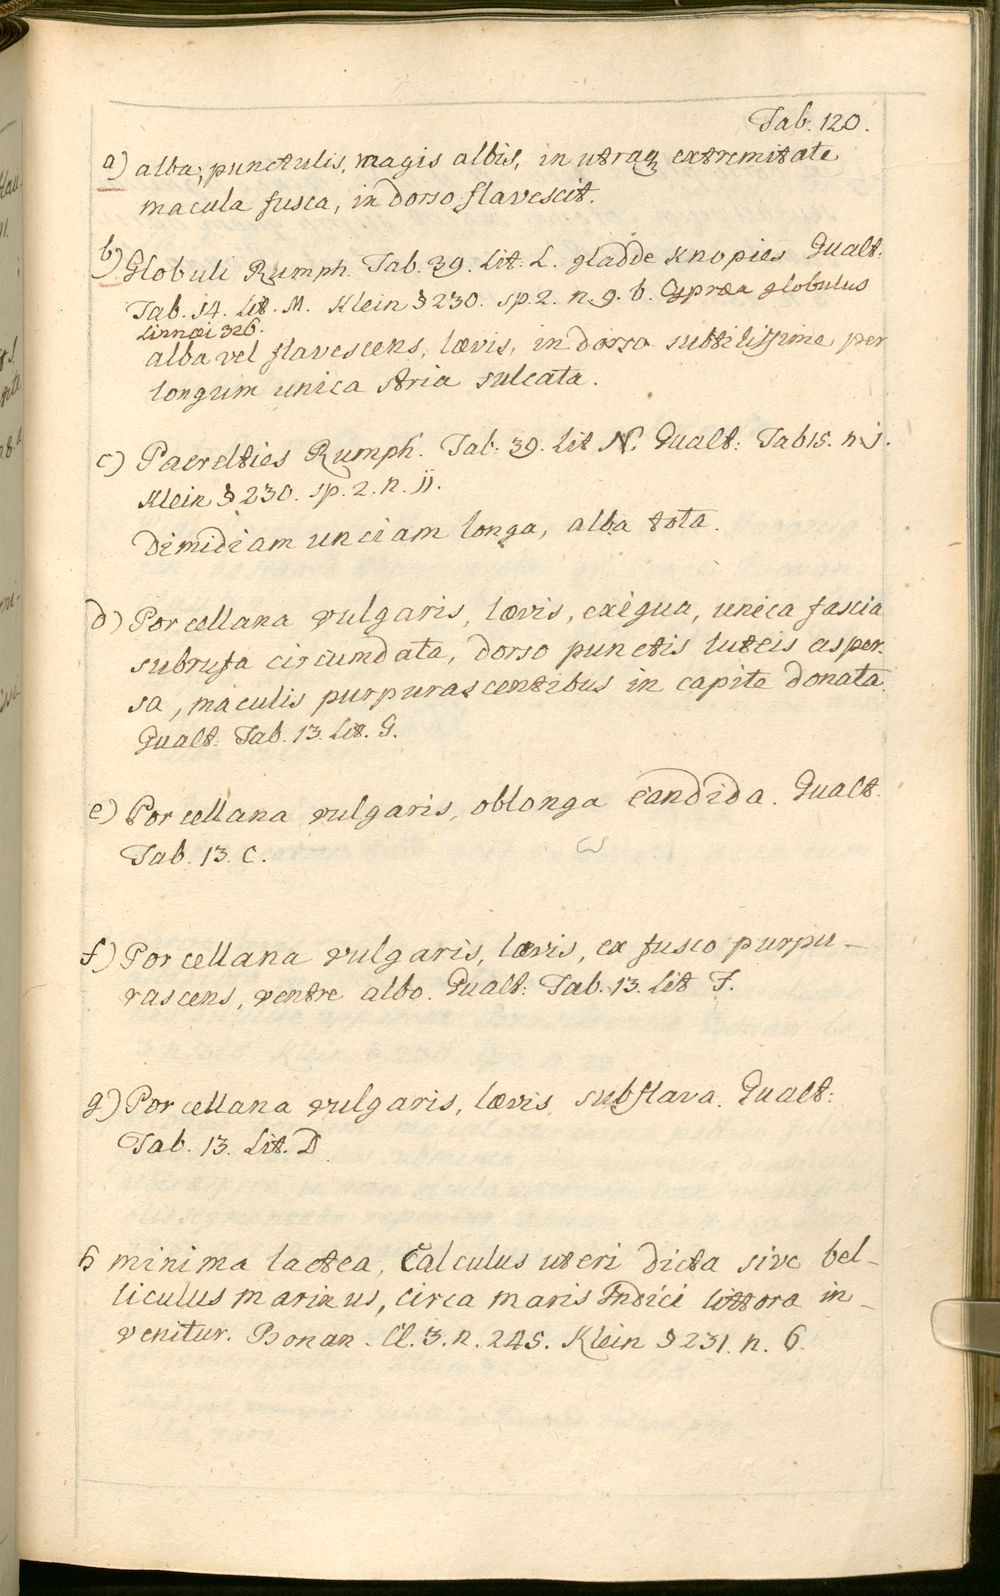 Tab. 120.
a) alba, punctulis, magis albis, in utraq extremitate
macula fusca, in dorso flavescit.
b) Globuli Rumph. Tab. 39. Lit. L. gladde Knopies Gualt.
Tab. 14. Lit. M. Klein § 230. sp. 2. n. 9. b. Cypræa globulus
Linnæi 326.
alba vel flavescens, lævis, in dorso subtilissime per
longum unica stria sulcata.
c) Paerelties Rumph. Tab. 39. Lit N. Gualt: Tab 15. n j.
Klein § 230. sp. 2. n. jj.
Dimidiam unciam longa, alba tota.
d) Porcellana vulgaris, lævis, exigua, unica fascia
subrufa circumdata, dorso punctis luteis asper-
sa, maculis purpurascentibus in capite donata.
Gualt: Tab. 13. Lit. G.
e) Porcellana vulgaris, oblonga candida. Gualt.
Tab. 13. C.
f) Porcellana vulgaris, lævis, ex fusco purpu-
rascens, ventre albo. Gualt: Tab. 13. Lit F.
g) Porcellana vulgaris, lævis, subflava. Gualt:
Tab. 13. Lit. D
h minima lactea, Calculus uteri dicta sive bel-
liculus marinus, circa maris Indici littora in-
venitur. Bonan. Cl. 3. n. 245. Klein § 231. n. 6.